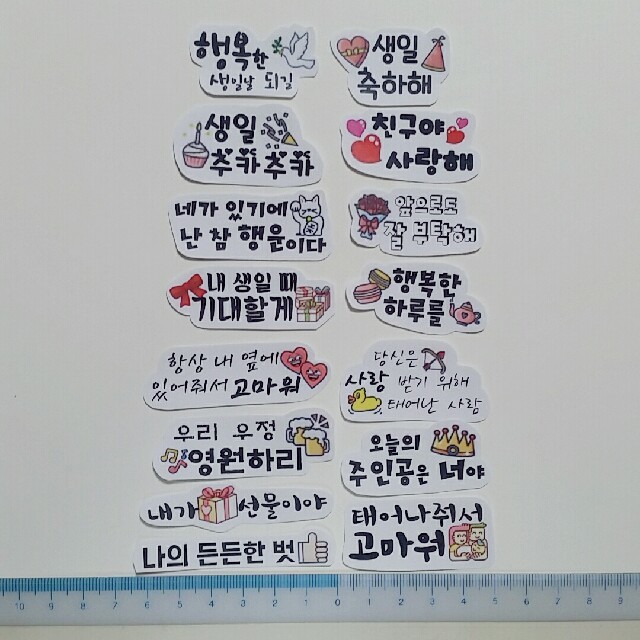 행복한
생일날 되길
생일
축하해
생일
추카추카
친구야
사랑해
네가 있기에
난 참 행운이다
앞으로도
잘 부탁해
내 생일 때
기대할게
행복한
하루를
항상 내 옆에
있어줘서 고마워
당신은
사랑 받기 위해
태어난 사람
우리 우정
영원하리
오늘의
주인공은 너야
내가 선물이야
태어나줘서
고마워
나의 든든한 벗
10 9 8 7 6 5 4 3 2 1 0 1 2 3 4 5 6 7 8 9